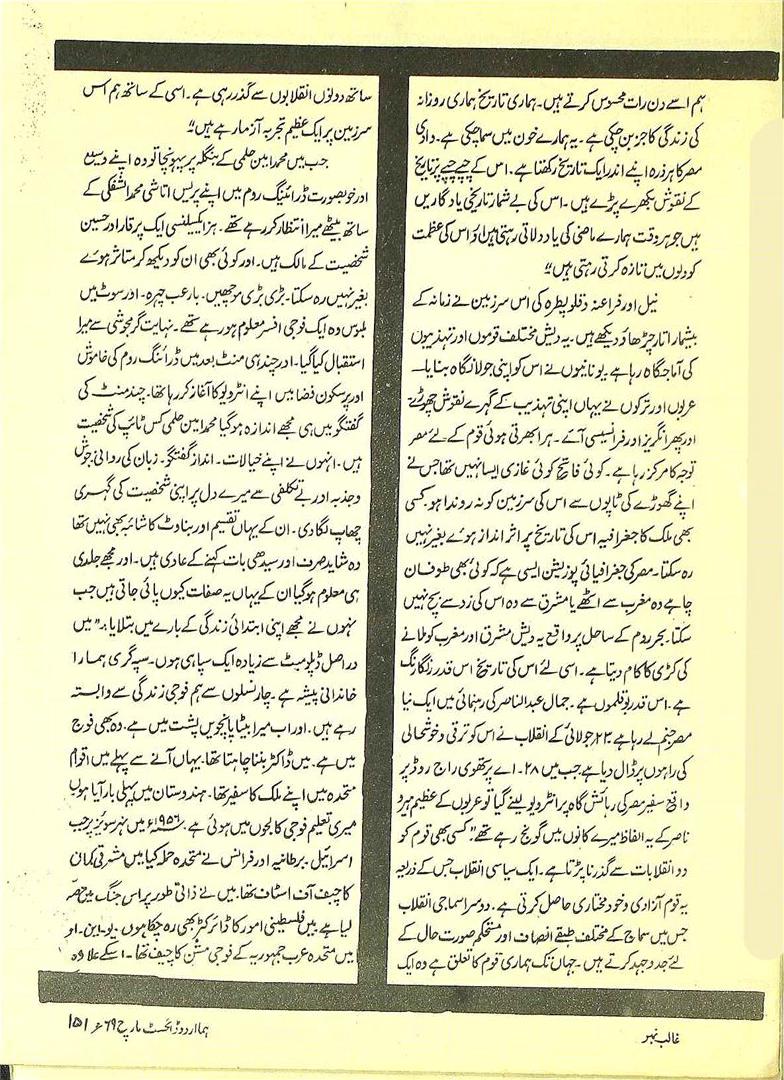 ہم اسے دن رات محسوس کرتے ہیں۔ ہماری تاریخ ہماری روزانہ
کی زندگی کا جز بن چکی ہے۔ یہ ہمارے خون میں سما چکی ہے۔ وادیٔ
مصر کا ہر ذرہ اپنے اندر ایک تاریخ رکھتا ہے۔ اس کے چپے چپے پر تاریخ
کے نقوش بکھرے پڑے ہیں۔ اس کی بے شمار تاریخی یادگاریں
ہیں جو ہر وقت ہمارے ماضی کی یاد دلاتی رہتی ہیں اور اس کی عظمت
کو دلوں میں تازہ کرتی رہتی ہیں"
نیل اور فراعنہ و قلوپطرہ کی اس سرزمین نے زمانہ کے
بیشمار اتار چڑھاؤ دیکھے ہیں۔ یہ دیش مختلف قوموں اور تہذیبوں
کی آماجگاہ رہا ہے۔ یونانیوں نے اس کو اپنی جولانگاہ بنایا۔
عربوں اور ترکوں نے یہاں اپنی تہذیب کے گہرے نقوش چھوڑے
اور پھر انگریز اور فرانسیسی آئے۔ ہر ابھرتی ہوئی قوم کے لئے مصر
توجہ کا مرکز رہا ہے۔ کوئی فاتح کوئی غازی ایسا نہیں تھا جس نے
اپنے گھوڑے کی ٹاپوں سے اس کی سرزمین کو نہ روندا ہو۔ کسی
بھی ملک کا جغرافیہ اس کی تاریخ پر اثر انداز ہوئے بغیر نہیں
رہ سکتا۔ مصر کی جغرافیائی پوزیشن ایسی ہے کہ کوئی بھی طوفان
چاہے وہ مغرب سے اٹھے یا مشرق سے وہ اس کی زد سے بچ نہیں
سکتا۔ بحر روم کے ساحل پر واقع یہ دیش مشرق اور مغرب کو ملانے
کی کڑی کا کام دیتا ہے۔ اسی لئے اس کی تاریخ اس قدر رنگا رنگ
ہے۔ اس قدر بوقلموں ہے۔ جمال عبدالناصر کی رہنمائی میں ایک نیا
مصر جنم لے رہا ہے ۲۳ جولائی کے انقلاب نے اس کو ترقی و خوشحالی
کی راہوں پر ڈال دیا ہے۔ جب میں ۲۸۔۱ے پرتھوی راج روڈ پر
واقع سفیر مصر کی رہائش گاہ پر انٹرویو لینے گیا تو عربوں کے عظیم ہیرو
ناصر کے یہ الفاظ میرے کانوں میں گونج رہے تھے "کسی بھی قوم کو
دو انقلابات سے گذرنا پڑتا ہے۔ ایک سیاسی انقلاب جس کے ذریعہ
یہ قوم آزادی و خود مختاری حاصل کرتی ہے۔ دوسرا سماجی انقلاب
جس میں سماج کے مختلف طبقے انصاف اور مستحکم صورت حال کے
لئے جدوجہد کرتے ہیں۔ جہاں تک ہماری قوم کا تعلق ہے وہ ایک
ساتھ دونوں انقلابوں سے گذر رہی ہے۔ اسی کے ساتھ ہم اس
سرزمین پر ایک عظیم تجربہ آزما رہے ہیں"
جب میں محمد امین حلمی کے بنگلہ پر پہونچا تو وہ اپنے وسیع
اور خوبصورت ڈرائنگ روم میں اپنے پریس اتاشی محمد الشفکی کے
ساتھ بیٹھے میرا انتظار کر رہے تھے۔ ہز ایکسیلنسی ایک پروقار اور حسین
شخصیت کے مالک ہیں۔ اور کوئی بھی ان کو دیکھ کر متاثر ہوئے
بغیر نہیں رہ سکتا۔ بڑی بڑی مونچھیں۔ بارعب چہرہ۔ اور سوٹ میں
ملبوس وہ ایک فوجی افسر معلوم ہو رہے تھے۔ نہایت گرمجوشی سے میرا
استقبال کیا گیا۔ اور چند ہی منٹ بعد میں ڈرائنگ روم کی خاموش
اور پرسکون فضا میں اپنے انٹرویو کا آغاز کر رہا تھا۔ چند منٹ کی
گفتگو میں ہی مجھے اندازہ ہو گیا محمد امین حلمی کس ٹائپ کی شخصیت
ہیں۔ انہوں نے اپنے خیالات۔ انداز گفتگو۔ زبان کی روانی جوش
و جذبہ اور بے تکلفی سے میرے دل پر اپنی شخصیت کی گہری
چھاپ لگا دی۔ ان کے یہاں تقسیم اور بناوٹ کا شائبہ بھی نہیں تھا
وہ شاید صرف اور سیدھی بات کہنے کے عادی ہیں۔ اور مجھے جلدی
ہی معلوم ہو گیا ان کے یہاں یہ صفات کیوں پائی جاتی ہیں جب
نہوں نے مجھے اپنی ابتدائی زندگی کے بارے میں بتلایا:۔ "میں
در اصل ڈپلومیٹ سے زیادہ ایک سپاہی ہوں۔ سپہ گری ہمارا
خاندانی پیشہ ہے۔ چار نسلوں سے ہم فوجی زندگی سے وابستہ
رہے ہیں۔ اور اب میرا بیٹا پانچویں پشت میں ہے۔ وہ بھی فوج
میں ہے۔ میں ڈاکٹر بننا چاہتا تھا۔ یہاں آنے سے پہلے میں اقوام
متحدہ میں اپنے ملک کا سفیر تھا۔ ہندوستان میں پہلی بار آیا ہوں
میری تعلیم فوجی کالجوں میں ہوئی ہے۔ ۱۹۵۶ء میں نہر سوئز پر جب
اسرائیل برطانیہ اور فرانس نے متحدہ حملہ کیا میں مشرقی کمان
کا چیف آف اسٹاف تھا۔ میں نے ذاتی طور پر اس جنگ میں حصہ
لیا ہے۔ میں فلسطینی امور کا ڈائرکٹر بھی رہ چکا ہوں۔ یو۔ این۔ او
میں متحدہ عرب جمہوریہ کے فوجی مشن کا چیف تھا۔ اسکے علاوہ
غالب نمبر
ہما اردو ڈائجسٹ مارچ ۶۹ء ۱۵۱